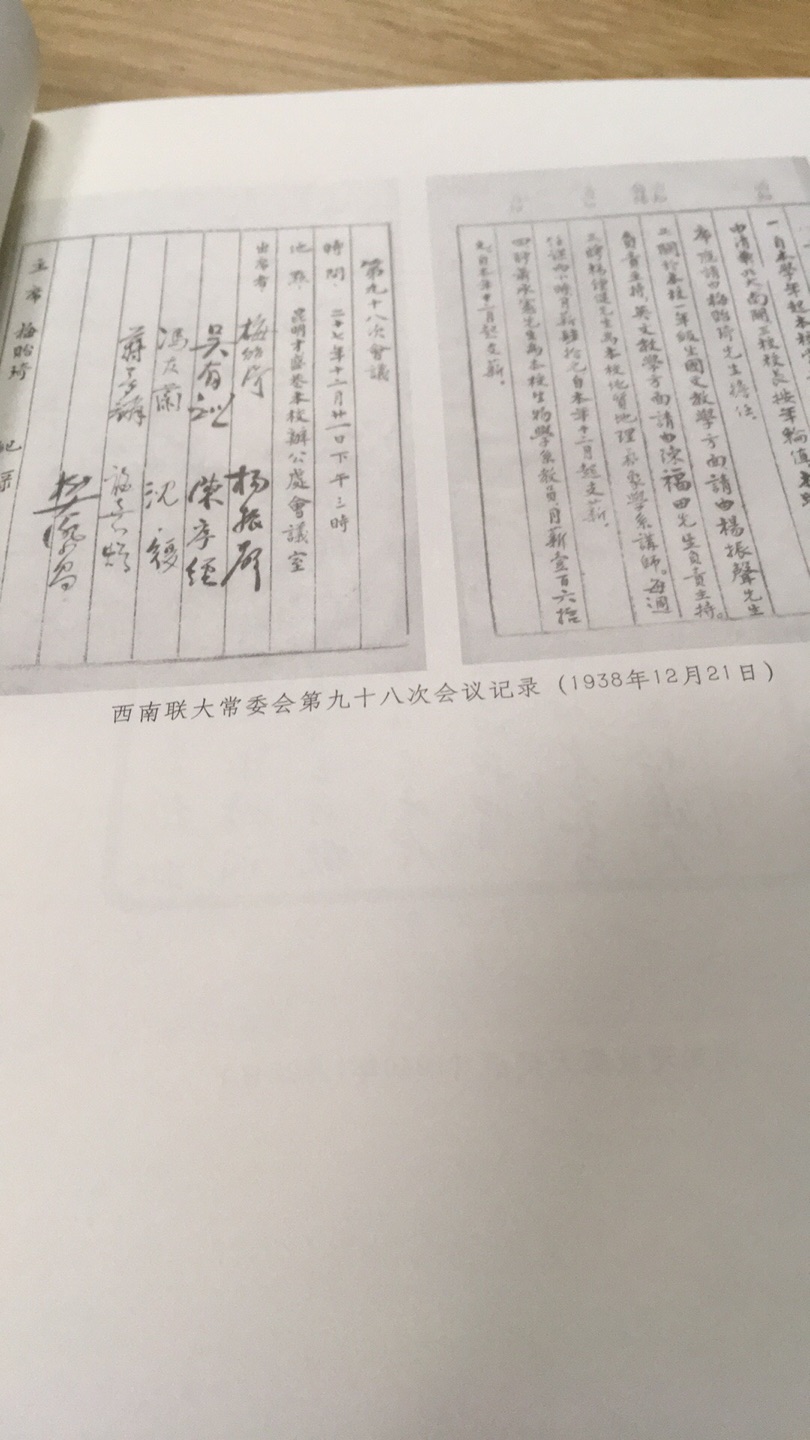 第九十八次會議
時間 二十七年十二月廿一日下午三時
地點 昆明才盛巷本校辦公處會議室
出席者 梅貽琦 楊振聲
吳有訓 陳序經
馮友蘭 沈履
蔣夢麟 施嘉煬
樊際昌
主席 梅貽琦
一自本學年起本校常
由清華北大南開三校校長按年輪值本
席院請由梅貽琦先生擔任
二關於本校一年級生國文教學方面請由楊振聲先生
負責主持,英文教學方面請由陳福田先生負責主持。
三聘 先生為本校地質地理氣象學系講師。每週
任課四小時月薪 拾元自本年十二月起支薪。
四聘 先生為本校生物學系教員月薪壹百六拾
元自本年十二月起支薪。
西南联大常委会第九十八次会议记录(1938年12月21日)